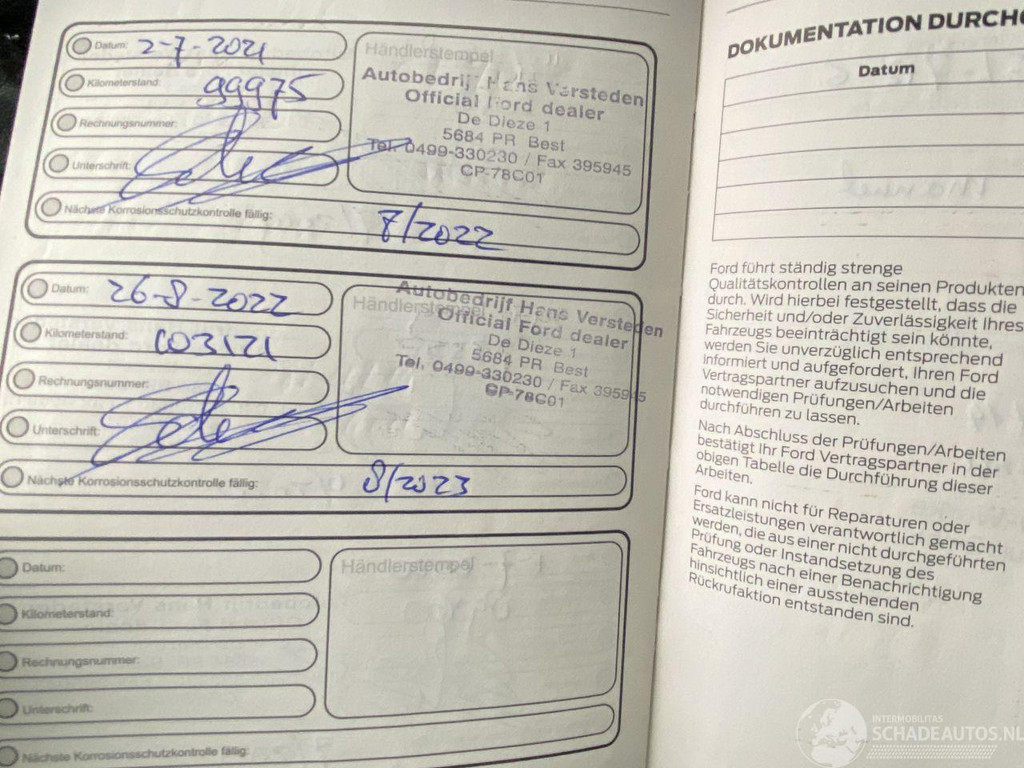 Datum: 2-7-2021
Händlerstempel
Kilometerstand: 99975
Autobedrijf Hans Versteden
Official Ford dealer
De Dieze 1
5684 PR Best
Tel. 0499-330230 / Fax 395945
CP-78C01
Rechnungsnummer:
Unterschrift:
Nächste Korrosionsschutzkontrolle fällig: 8/2022
Datum: 26-8-2022
Händlerstempel
Autobedrijf Hans Versteden
Official Ford dealer
De Dieze 1
5684 PR Best
Tel. 0499-330230 / Fax 395945
CP-78C01
Kilometerstand: 103121
Rechnungsnummer:
Unterschrift:
Nächste Korrosionsschutzkontrolle fällig: 8/2023
Datum:
Händlerstempel
Kilometerstand:
Rechnungsnummer:
Unterschrift:
Nächste Korrosionsschutzkontrolle fällig:
DOKUMENTATION
Datum
Ford führt ständig strenge
Qualitätskontrollen an seinen Produkten
durch. Wird hierbei festgestellt, dass die
Sicherheit und/oder Zuverlässigkeit Ihres
Fahrzeugs beeinträchtigt sein könnte,
werden Sie unverzüglich entsprechend
informiert und aufgefordert, Ihren Ford
Vertragspartner aufzusuchen und die
notwendigen Prüfungen/Arbeiten
durchführen zu lassen.
Nach Abschluss der Prüfungen/Arbeiten
bestätigt Ihr Ford Vertragspartner in der
obigen Tabelle die Durchführung dieser
Arbeiten.
Ford kann nicht für Reparaturen oder
Ersatzleistungen verantwortlich gemacht
werden, die aus einer nicht durchgeführten
Prüfung oder Instandsetzung des
Fahrzeugs nach einer Benachrichtigung
hinsichtlich einer ausstehenden
Rückrufaktion entstanden sind.
INTERMOBILITAS
SCHADEAUTOS.NL